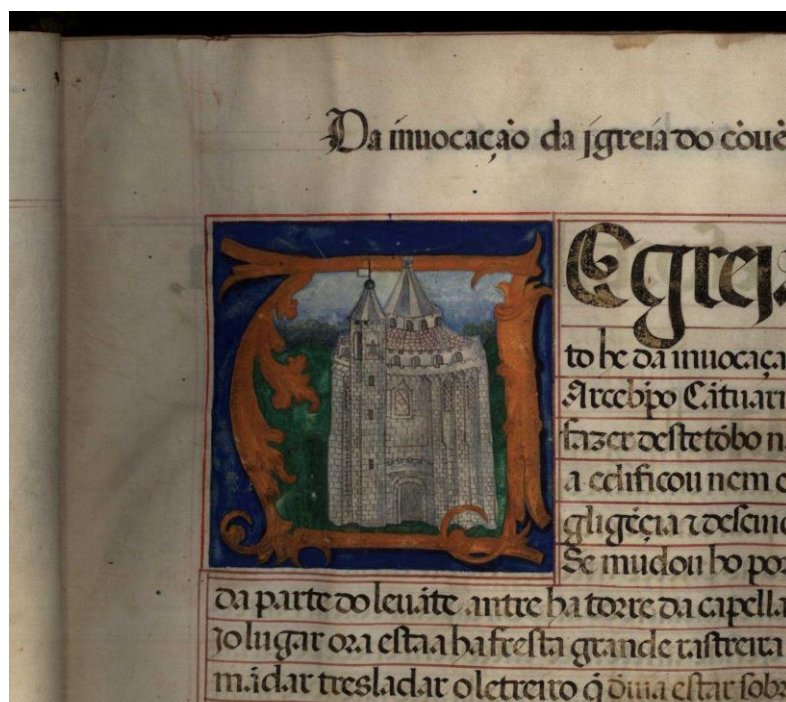 Da inuocação da igreia do cõuẽ
A Egreja
to he da inuocaça
Arcebpo Cãtuari
fazer deste tõbo n
a edificou nem e
gligẽcia z descuid
Se mudou ho por
da parte do leuãte antre ha torre da capella
jo lugar ora estaa ha fresta grande rastreira
mãdar tresladar o letreiro q̃ diuia estar sobr